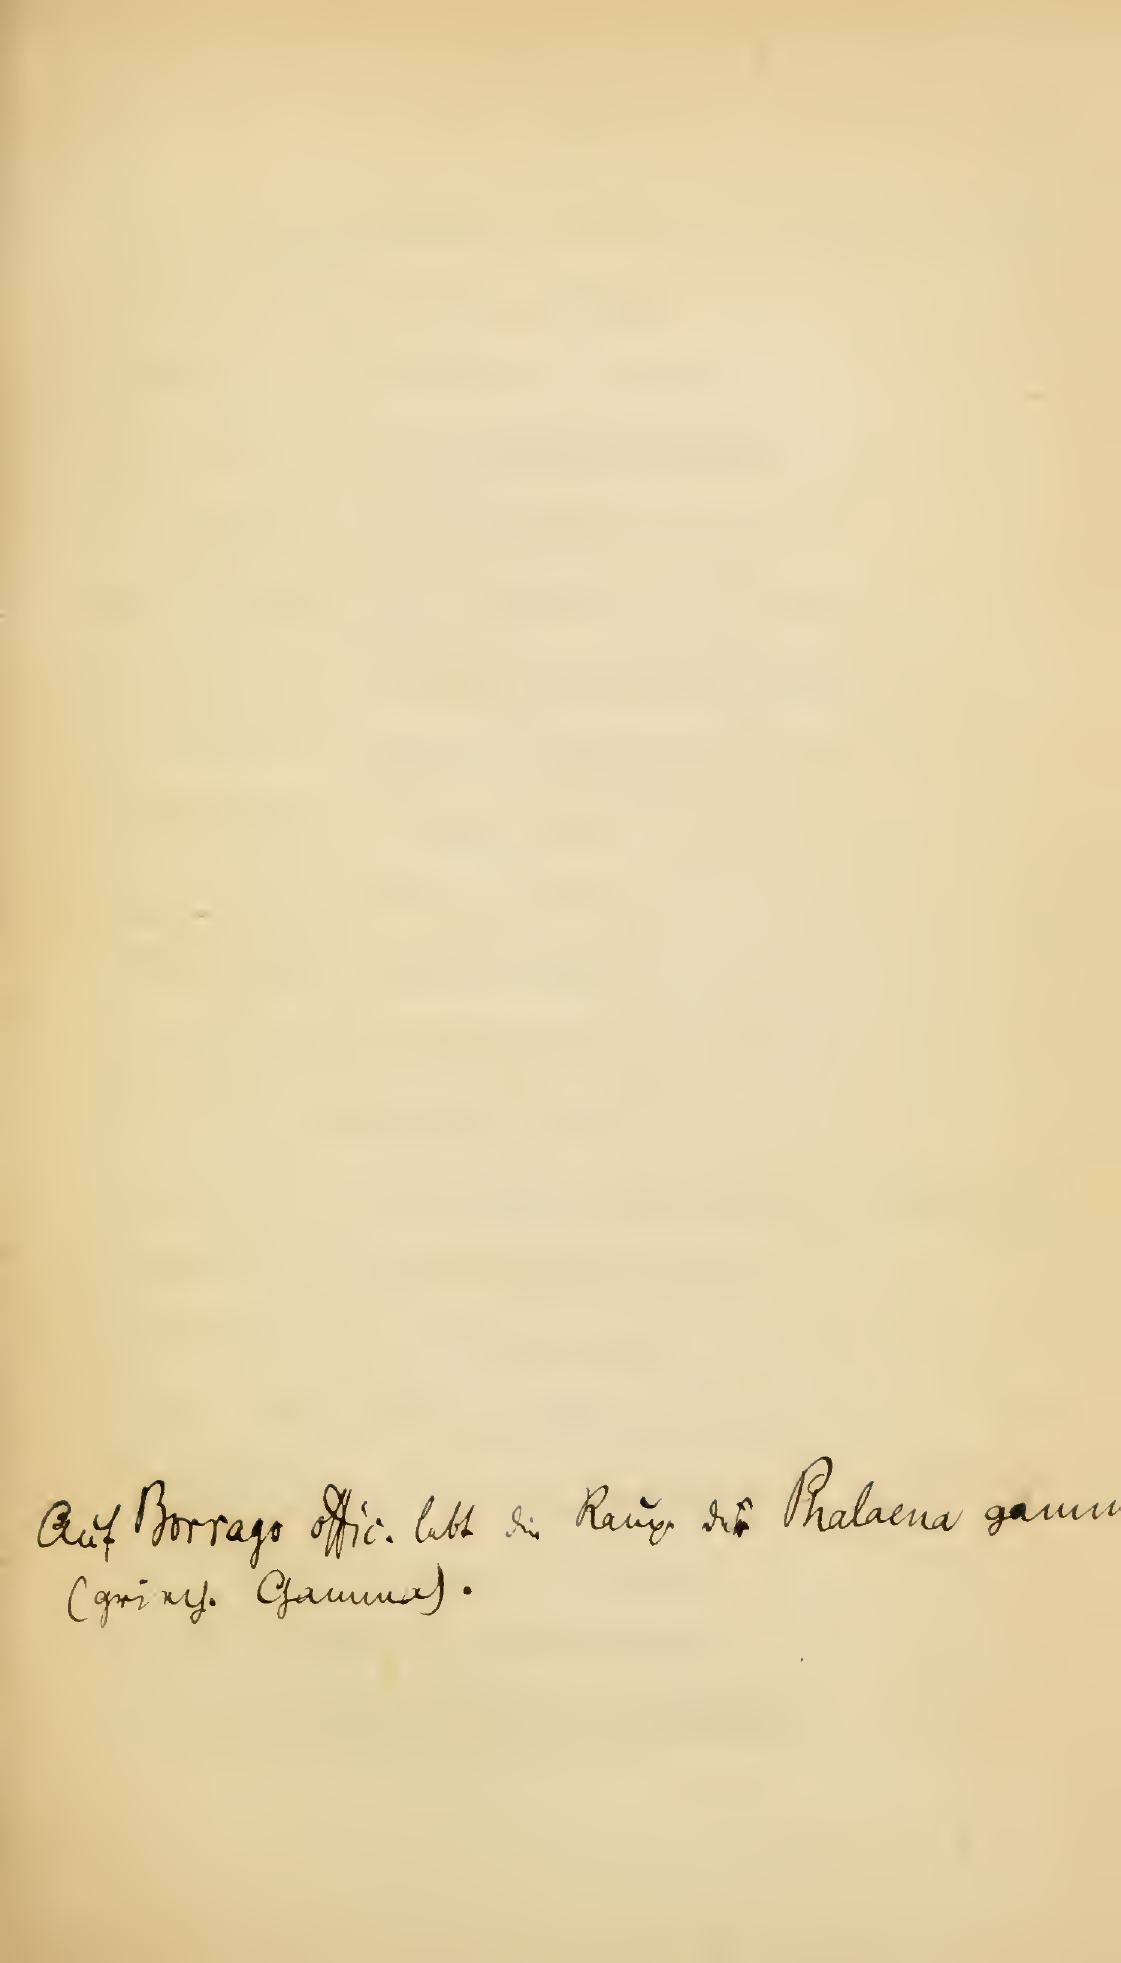 Auf Borrago offic. lebt die Raupe der Phalaena gamm
(griech. Gamma).